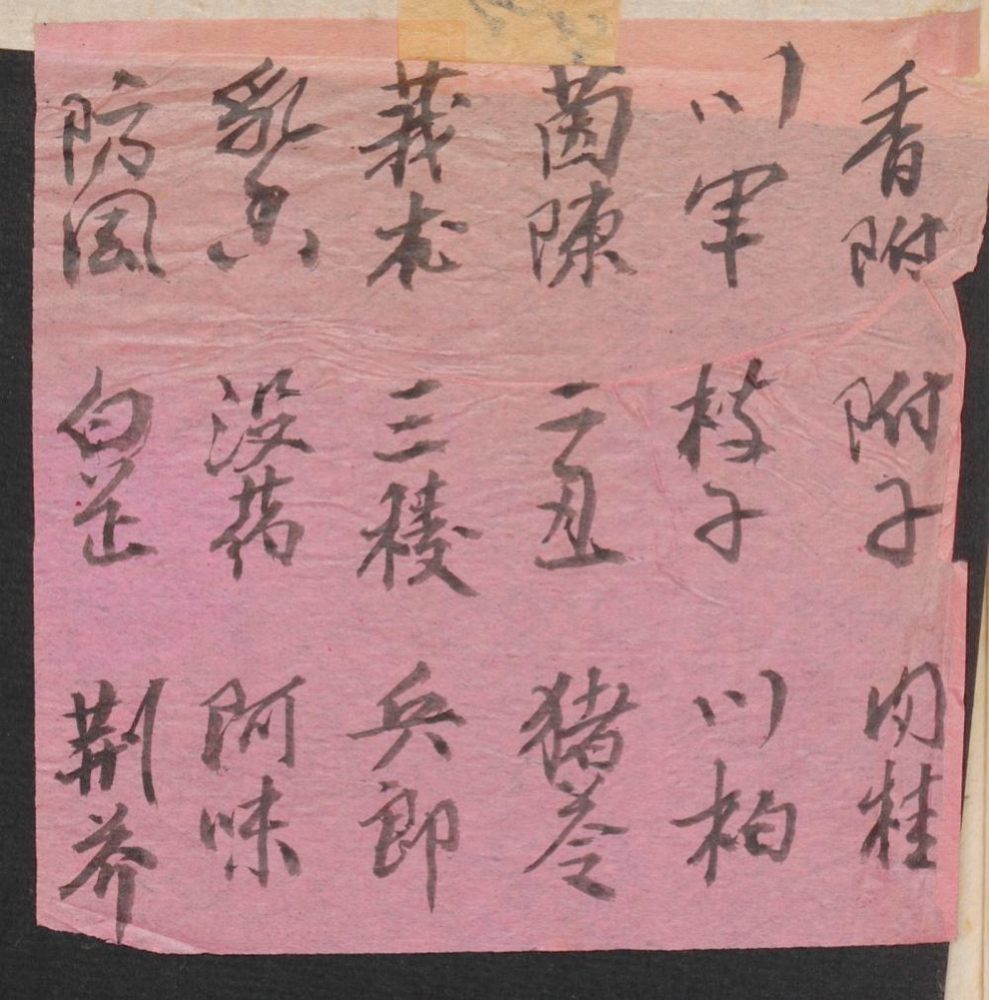 香附 附子 肉桂
川軍 枝子 川柏
茵陳 二丑 猪苓
莪朮 三稜 兵郎
乳香 没药 阿味
防風 白芷 荆芥